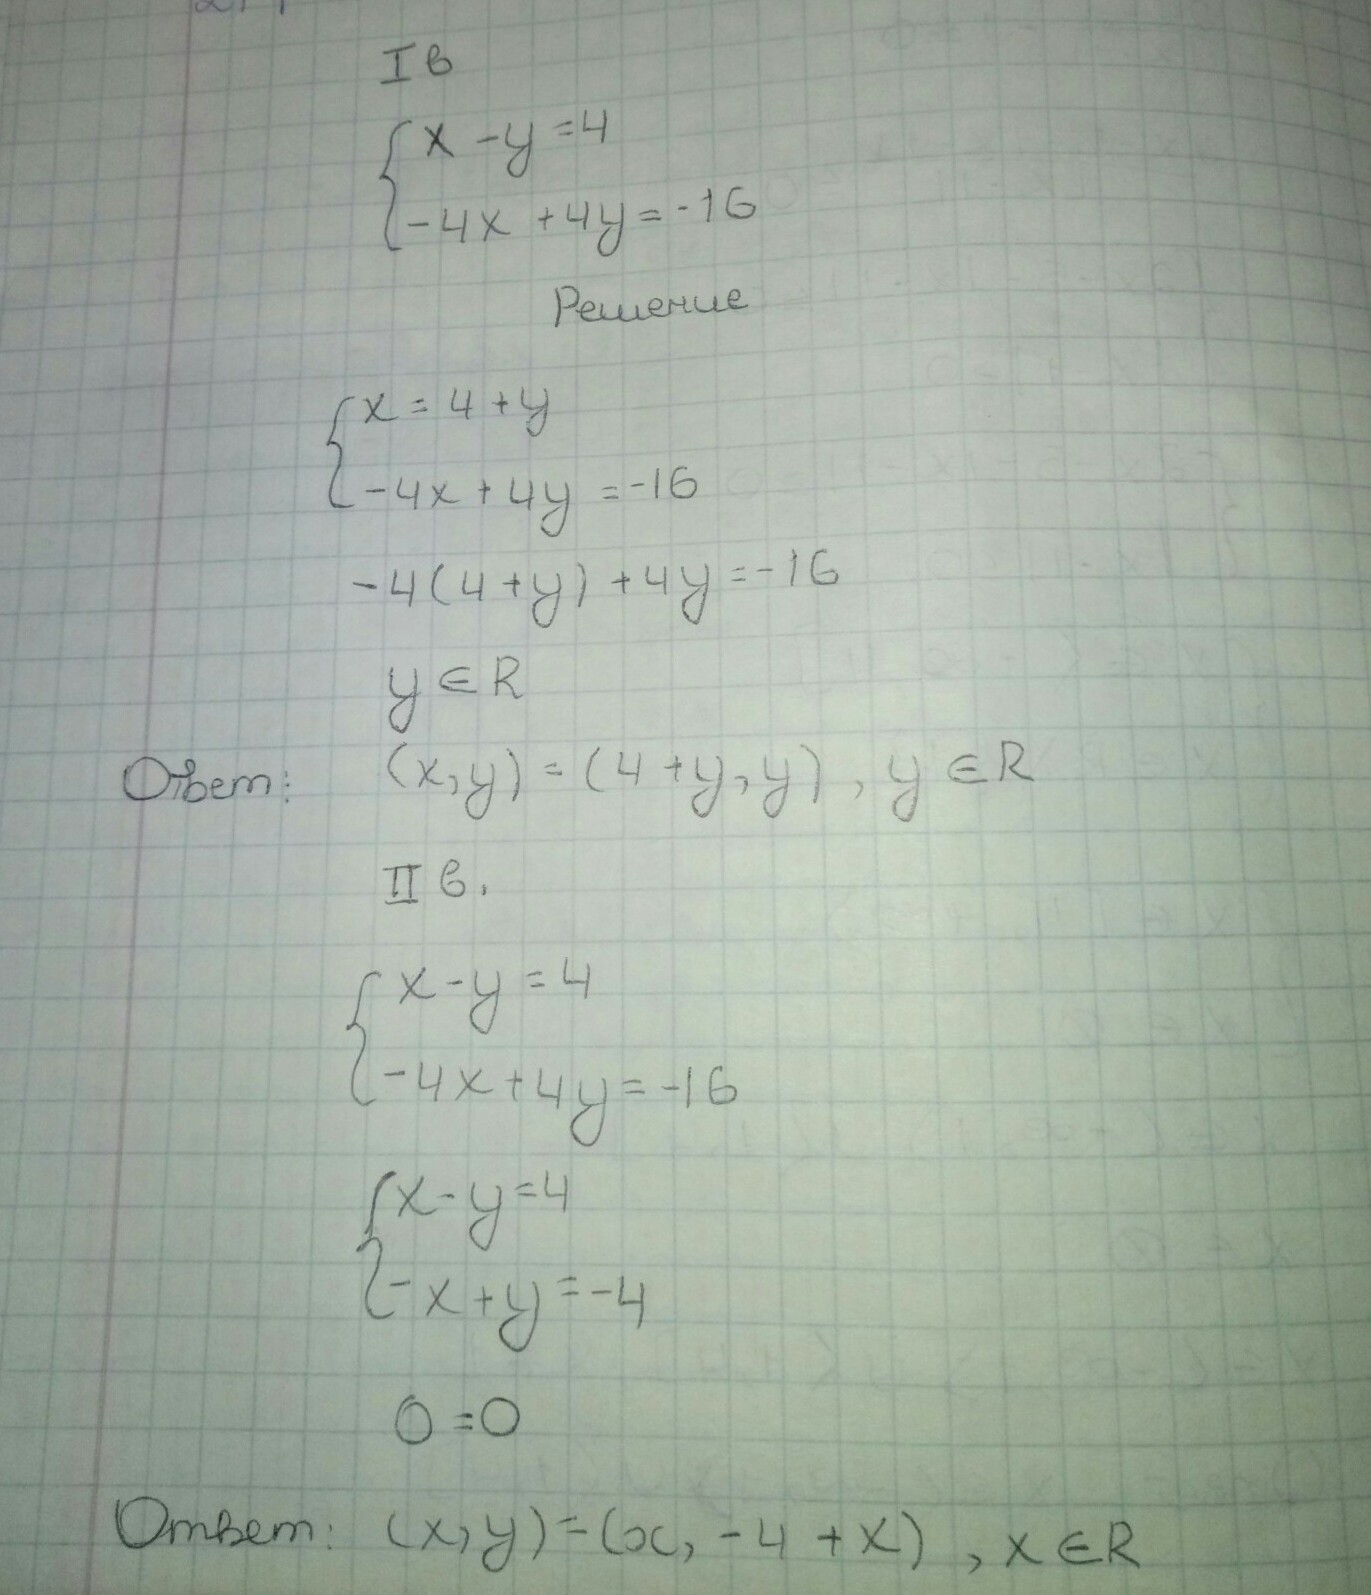 I в
x - y = 4
-4x + 4y = -16
Решение
x = 4 + y
-4x + 4y = -16
-4(4 + y) + 4y = -16
y ∈ R
Ответ: (x, y) = (4 + y, y), y ∈ R
II в.
x - y = 4
-4x + 4y = -16
x - y = 4
-x + y = -4
0 = 0
Ответ: (x, y) = (x, -4 + x), x ∈ R